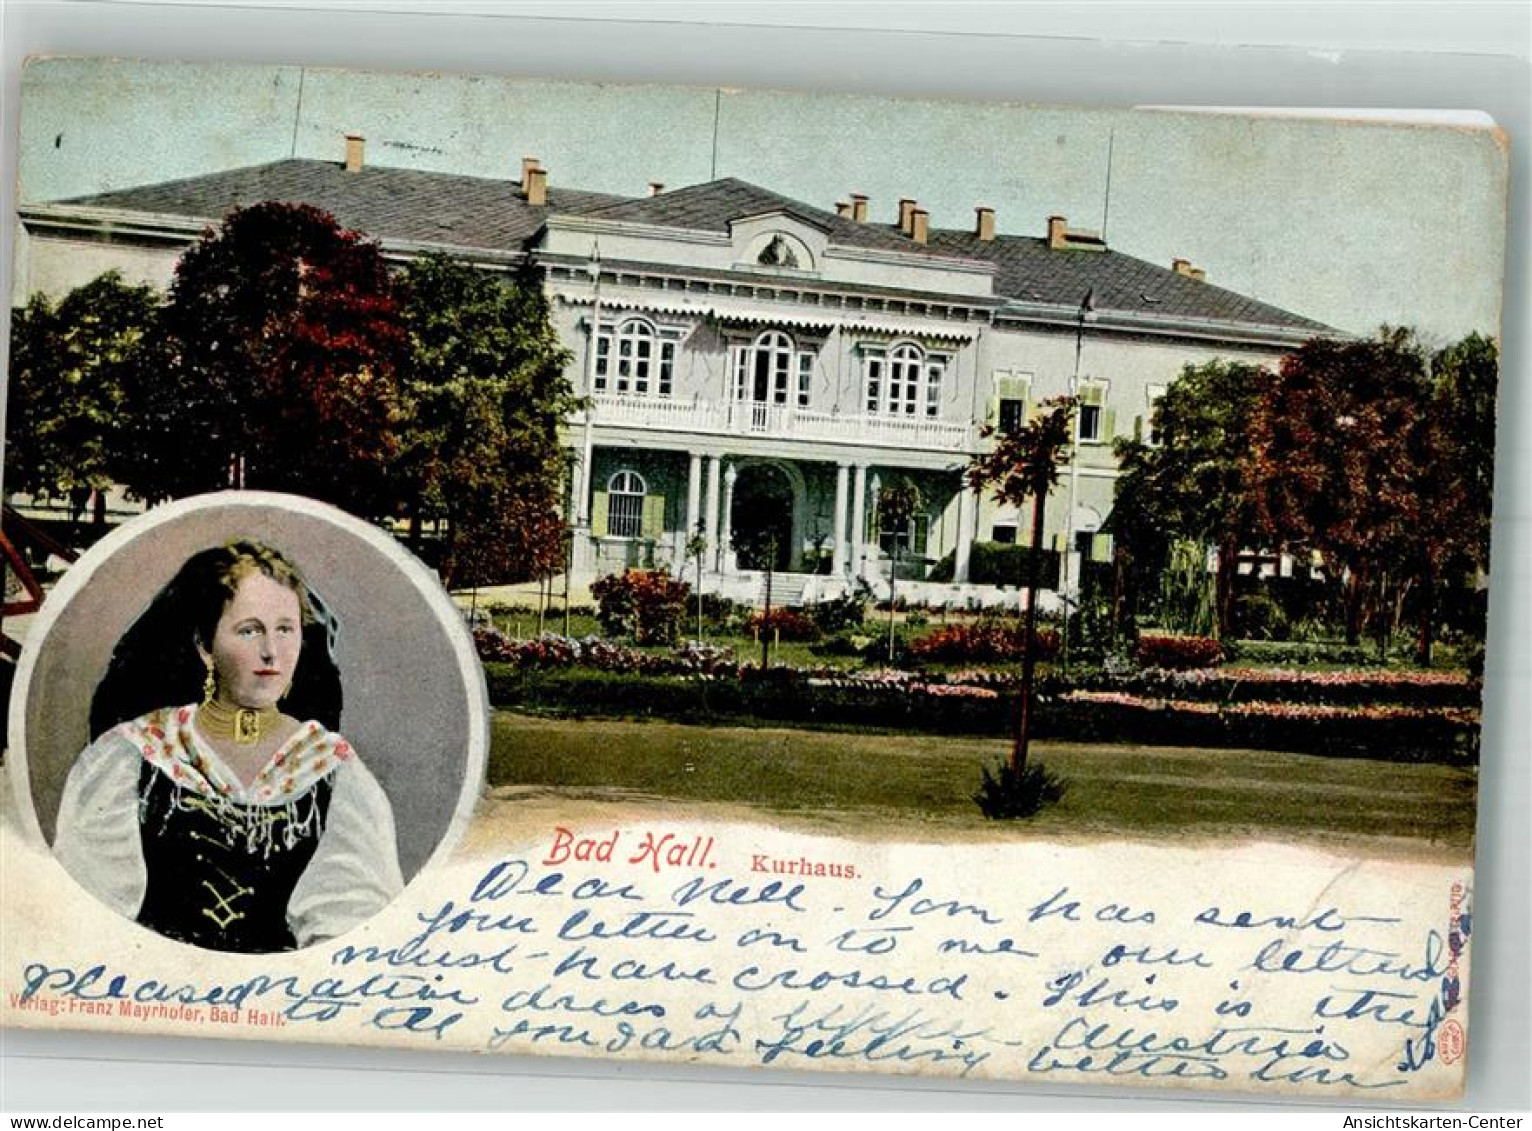 Bad Hall. Kurhaus.
Dear Nell. Tom has sent
your letter on to me our letters
must have crossed. This is the
nation dress of Upper Austria
Pleased to
dad feeling better
Verlag: Franz Mayrhofer, Bad Hall.
Ansichtskarten-Center